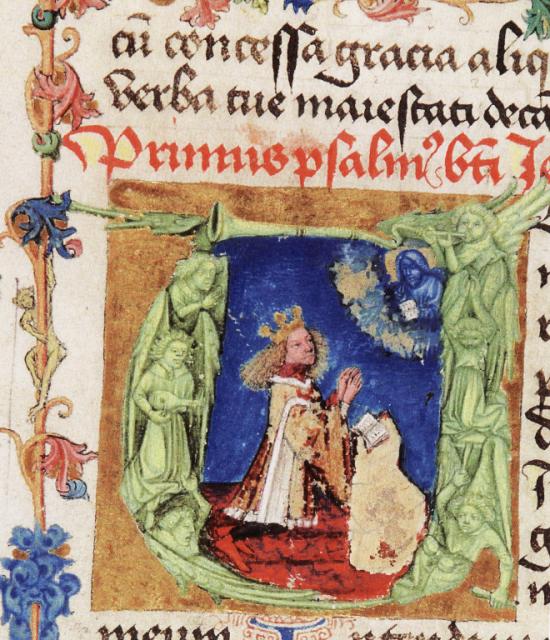 cū concessa gracia aliq
verba tue maiestati deca
Primus psalmꝰ bti Je
meum